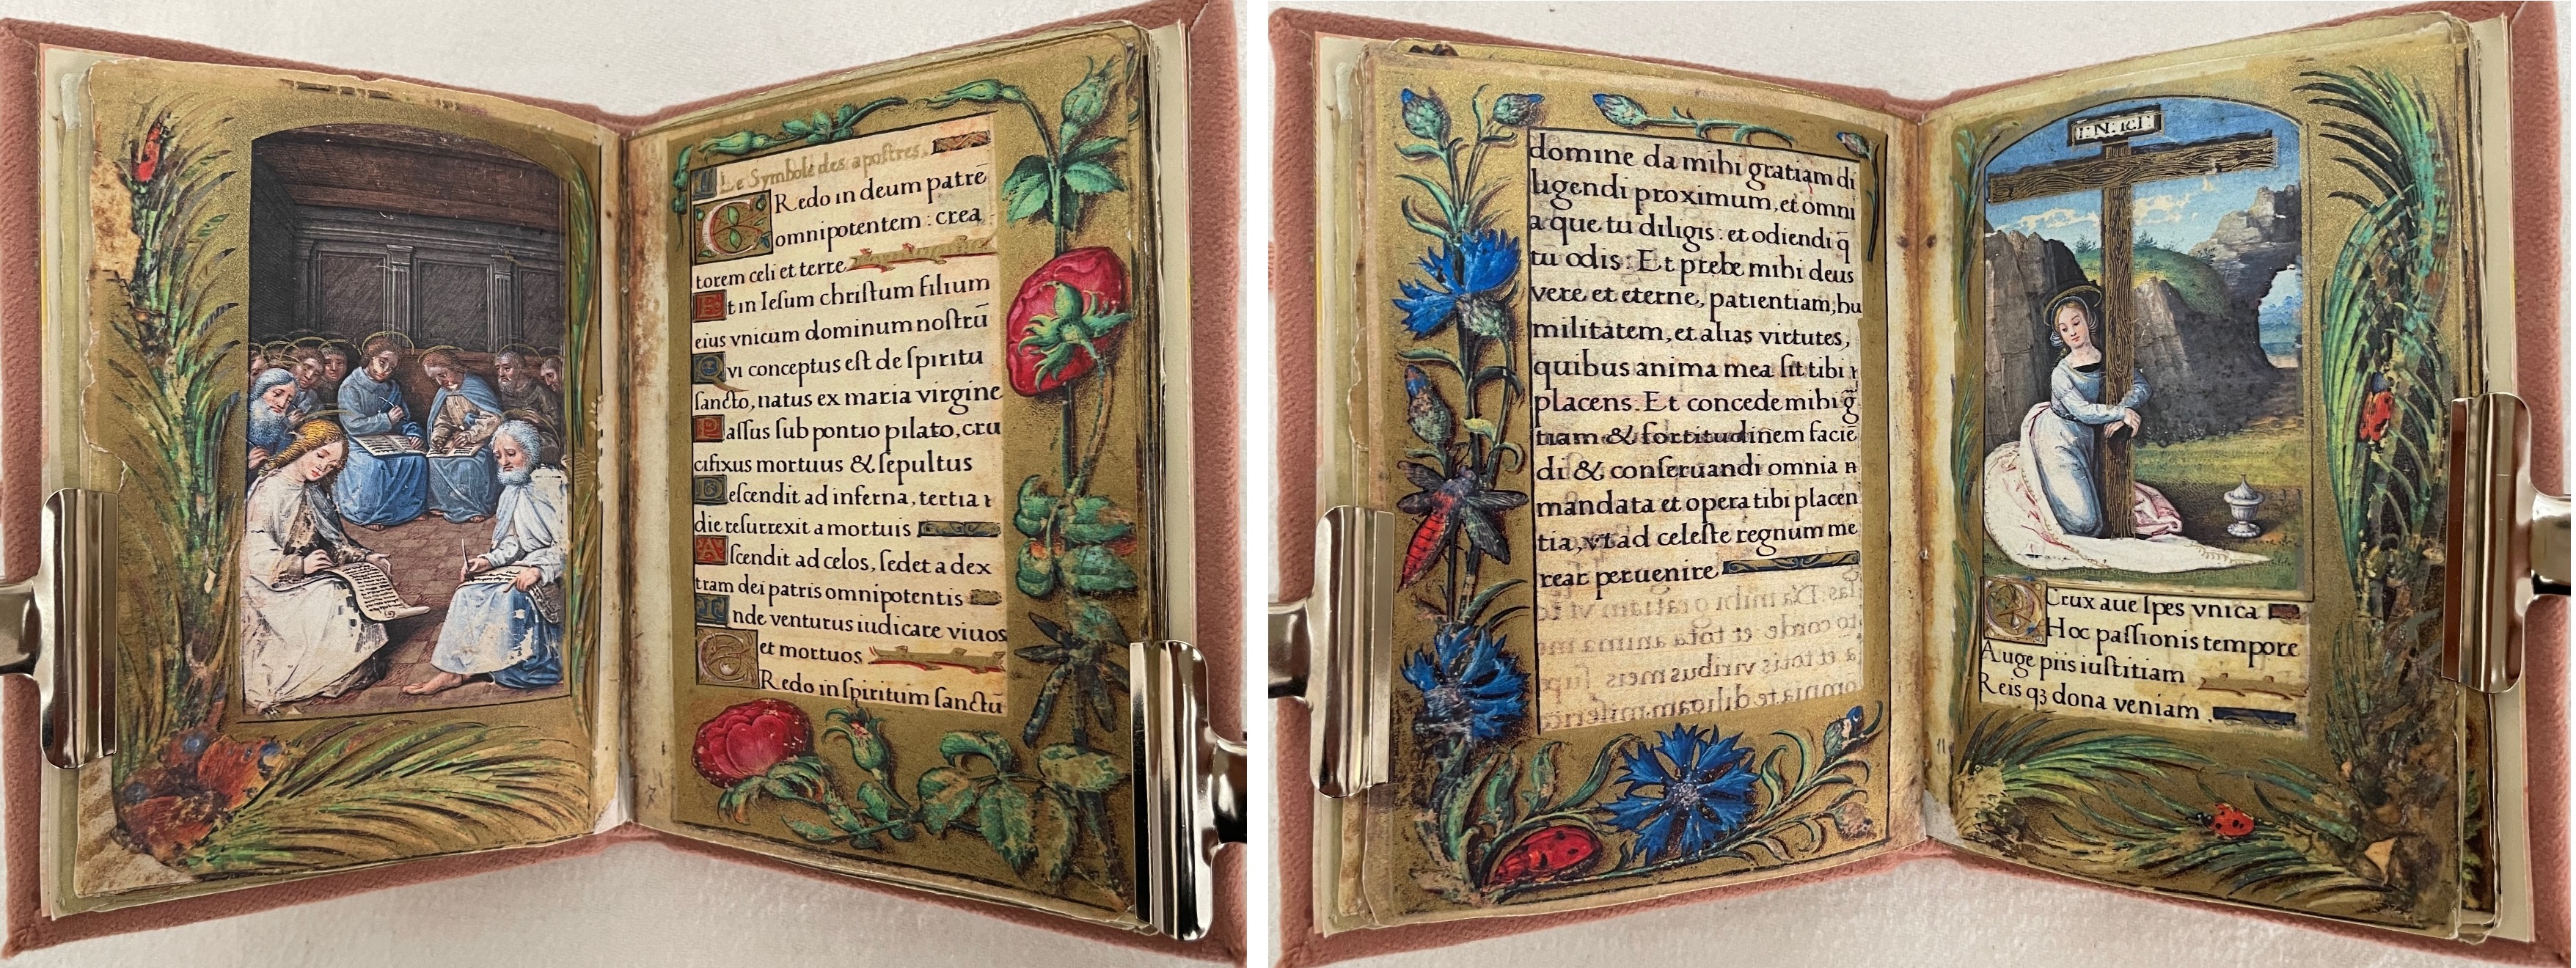 Le Symbole des apostres.
CRedo in deum patrē
omnipotentem: crea
torem celi et terre
Et in Ieſum chriſtum filium
eius vnicum dominum noſtrū
Qvi conceptus eſt de ſpiritu
ſancto, natus ex maria virgine
Paſſus ſub pontio pilato, cru
cifixus mortuus & ſepultus
Deſcendit ad inferna, tertia
die reſurrexit a mortuis
Aſcendit ad celos, ſedet a dex
tram dei patris omnipotentis
Inde venturus iudicare viuos
et mortuos
CRedo in ſpiritum ſanctū
domine da mihi gratiam di
ligendi proximum, et omni
a que tu diligis: et odiendi q̄
tu odis: Et prebe mihi deus
vere et eterne, patientiam, hu
militatem, et alias virtutes,
quibus anima mea ſit tibi
placens. Et concede mihi ḡ
tiam & fortitudinem facie
di & conſeruandi omnia
mandata et opera tibi placen
tia, vt ad celeſte regnum me
rear peruenire
I. N.
O Crux aue ſpes vnica
Hoc paſſionis tempore
Auge piis iuſtitiam
Reisqꝫ dona veniam.